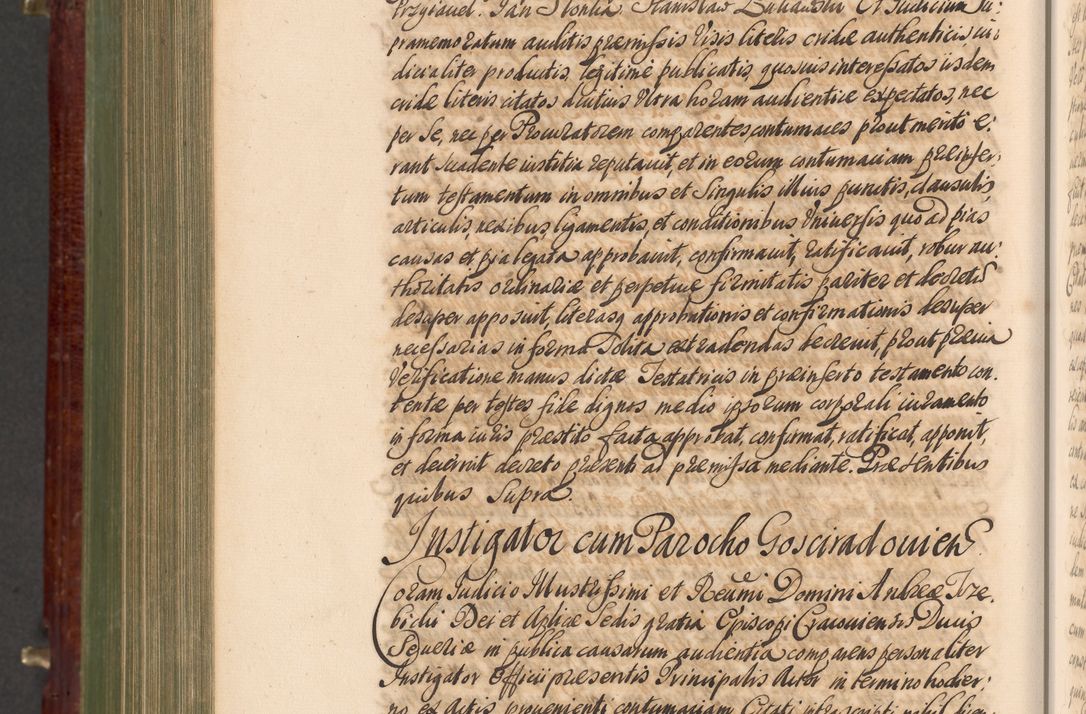 Przyiauel. Jan Słonka Stanisław Et Judicium su:
pramemoratum auditis præmissis Visis literis cridæ authenticis, iu:
dicialiter productis, legitimè publicatis, quosuis interessatos iisdem
cridæ literis citatos diutius Ultra horam audientiæ expectatos, nec
per se, nec per Procuratorem comparentes contumaces prout meriti e:
rant suadente iustitia reputauit, et in eorum contumaciam præinser:
tum testamentum in omnibus et singulis illius punctis, clausulis,
articulis, nexibus ligamentis, et conditionibus Vniuersis quo ad pias
causas et pia legata approbauit, confirmauit, ratificauit, robur au:
thoritatis ordinariæ et perpetuæ firmitatis pariter et decretũ
desuper apposuit, literasq approbationis et confirmationis desuper
necessarias in forma solita extradendas decreuit, prout præuia
Verificatione manus dictæ Testatricis in præinserto testamento con:
tentæ per testes fide dignos medio ipsorum corporali iuramento
in forma iuris præstito facta approbat, confirmat, ratificat, apponit,
et decernit decreto præsenti ad præmissa mediante. Præsentibus
quibus supra.
Instigator cum Parocho Gosciradouien
Coram Judicio Illustrissimi et Reũmi Domini Andreæ Trze:
bicki Dei et Aplicæ Sedis gratia Episcopi Cracouiensis Ducis
Seueriæ in publica causarum audientia comparens personaliter
Instigator Officii præsentis Principalis Actor in termino hodier:
no ex Actis proueniente contumaciam Citati infrascripti